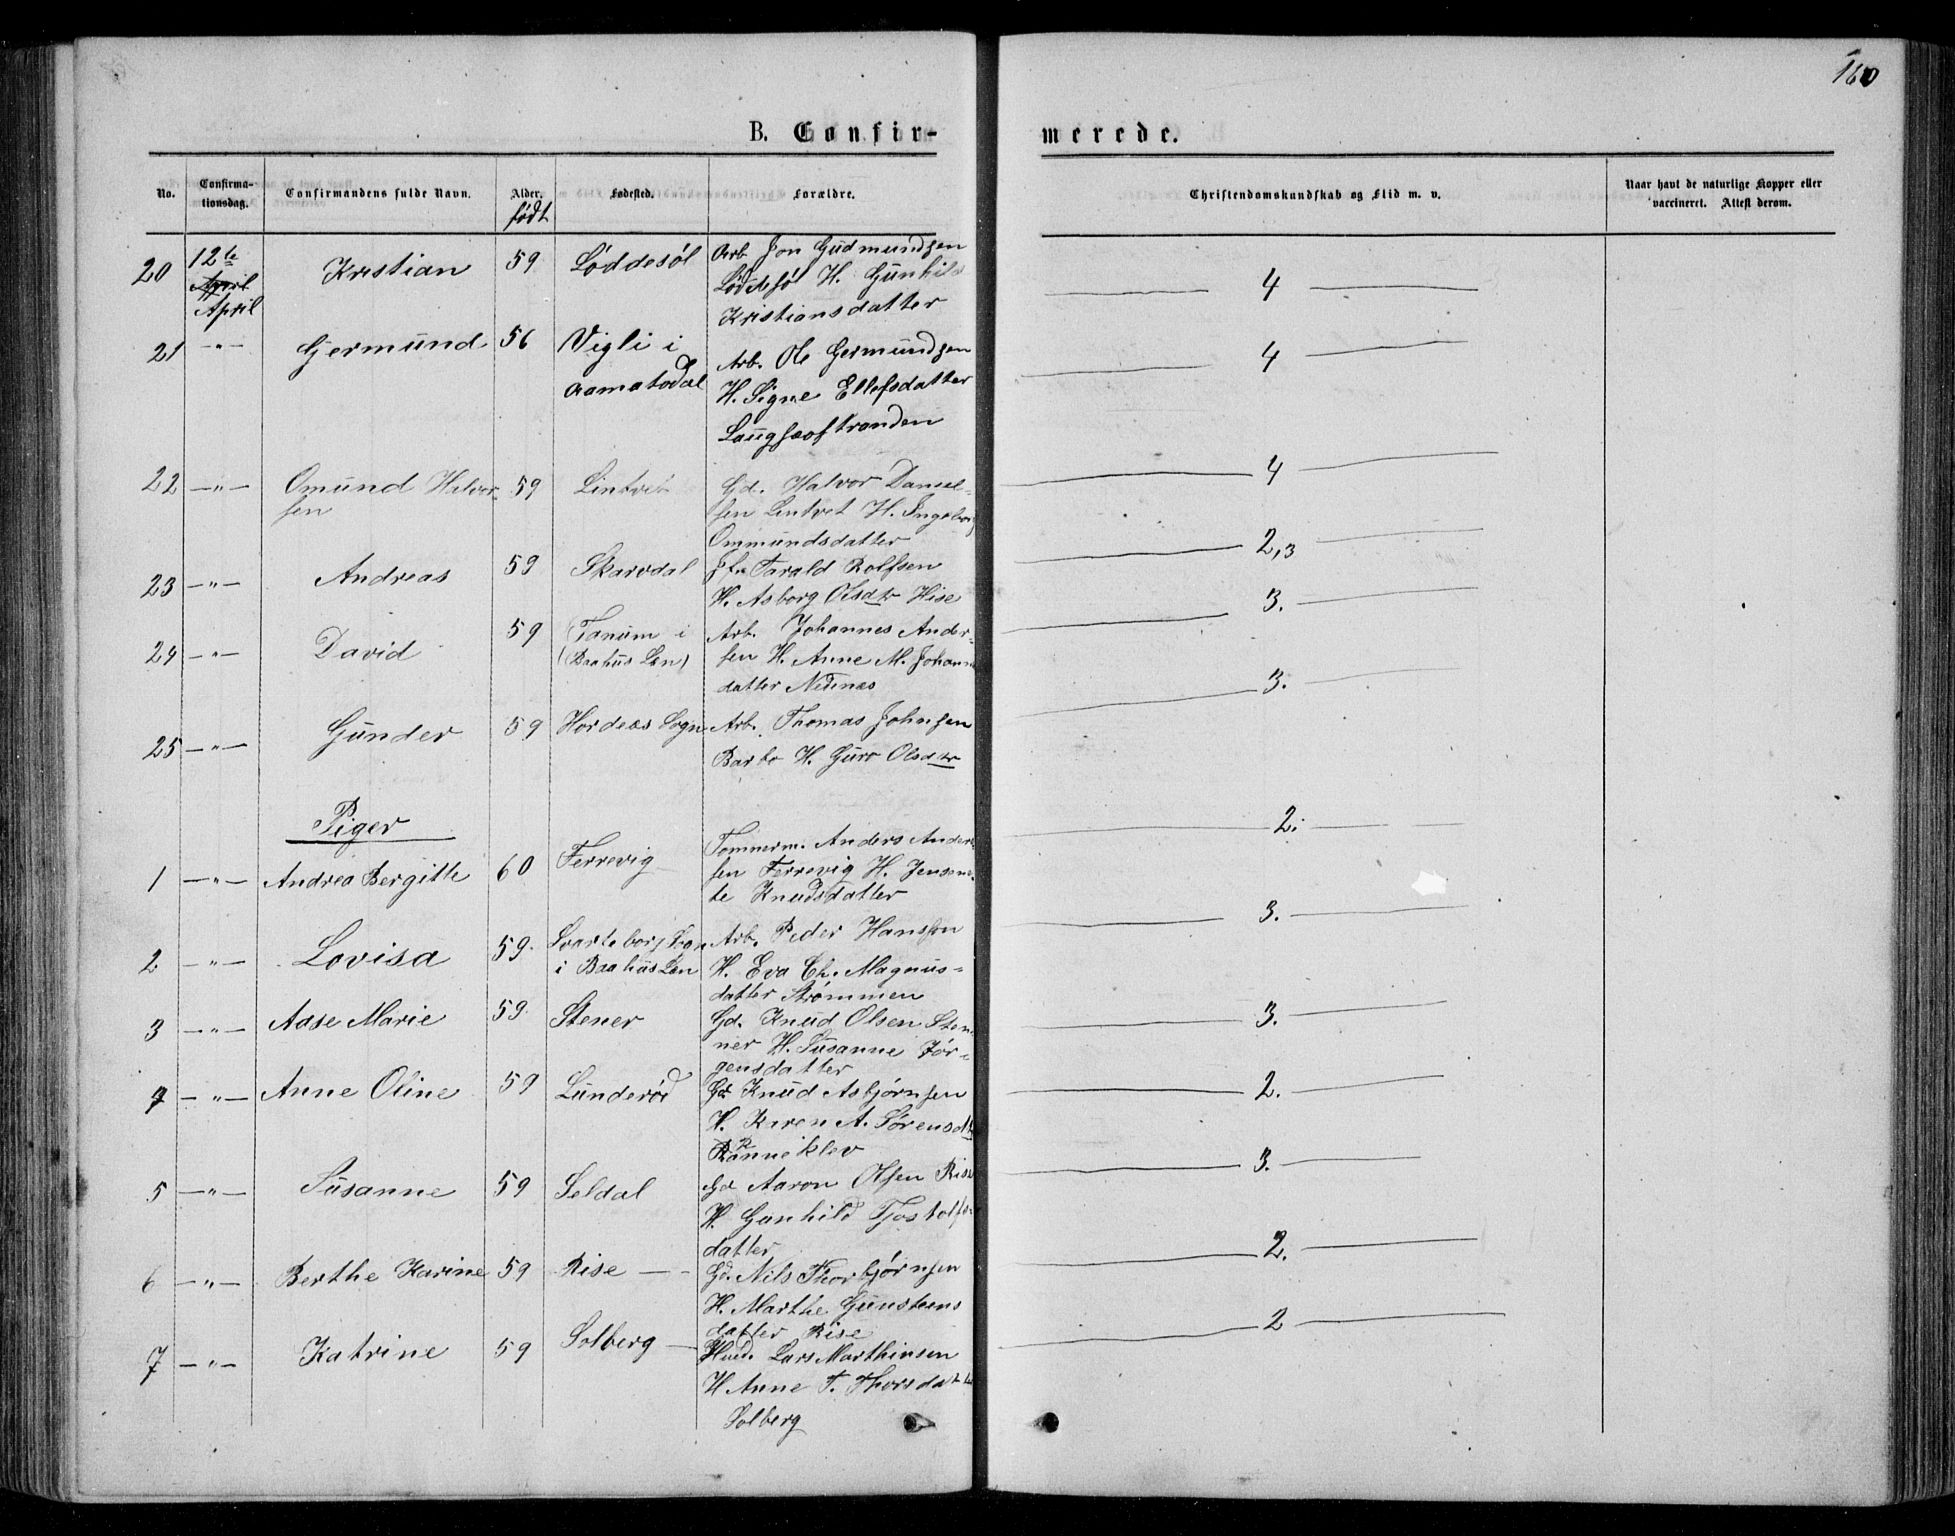 160
B. Confirmerede.
No. Confirmationsdag. Confirmandens fulde Navn. Alder. Fødested. Forældre. Christendomskundskab og Flid m. v. Naar havt de naturlige Kopper eller vaccineret. Attest derom.
født
20 12te April April Kristian 59 Løddesøl Arb. Jon Gudmundsen 4
Løddesøl H. Gunhild
Kristiansdatter
21 — " — Germund 56 Vigli i Arb. Ole Germundsen 4
Aamotsdal H. Signe Ellefsdatter
Laugsæstranden
22 — " — Omund Halvor- 59 Lintvet Gd. Halvor Daniel- 4
sen sen Lintvet H. Ingeborg
Ommundsdatter
23 — " — Andreas 59 Skarvdal Tarald Rolfsen 2,3
H. Asborg Olsdtr Hise
24 — " — David 59 Tanum i Arb. Johannes Ander- 3.
(Baahus Len) sen H. Anne M. Johann
datter Nedenæs
25 — " — Gunder 59 Hordnæs Sogn Arb. Thomas Johnsen 3.
Barbo H. Guro Olsdtr
Piger
1 — " — Andrea Bergitte 60 Ferrevig Tømmerm. Anders Ander- 2.
sen Ferrevig H. Jensine-
te Knudsdatter
2 — " — Lovisa 59. Svarteborg Sogn Arb. Peder Hanssen 3.
i Baahus Len H. Eva Ch. Magnus-
datter Strømmen
3 — " — Aase Marie 59. Stener Gd. Knud Olsen Ste- 3.
ner H. Susanne Jør-
gensdatter
4 — " — Anne Oline 59 Lunderød Gd. Knud Asbjørnsen 2.
H. Karen A. Sørensdtr
Ranneklev
5 — " — Susanne 59 Seldal Gd. Aaron Olsen Rise 3.
H. Gunhild Tjostolfs-
datter
6 — " — Berthe Karine 59 Rise — Gd. Nils Thorbjørnsen 2.
H. Marthe Gunsteens
datter Rise
7 — " — Katrine 59 Solberg — Husd. Lars Marthinsen 2
H Anne T. Thorsdatter
Solberg